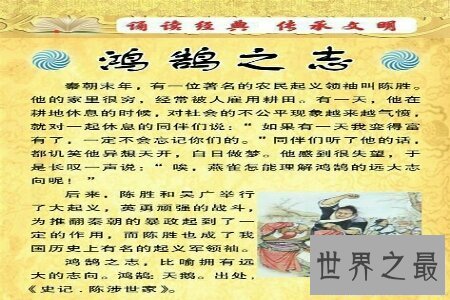 诵读经典 传承文明
鸿鹄之志
秦朝末年，有一位著名的农民起义领袖叫陈胜。
他的家里很穷，经常被人雇用耕田。有一天，他在
耕地休息的时候，对社会的不公平现象越来越气愤，
就对一起休息的同伴们说：“如果有一天我变得富
有了，一定不会忘记你们的。”同伴们听了他的话，
都讥笑他异想天开，白日做梦。他感到很失望，于
是长叹一声说：“唉，燕雀怎能理解鸿鹄的远大志
向呢！”
后来，陈胜和吴广举行
了大起义，英勇顽强的战斗，
为推翻秦朝的暴政起到了一
定的作用，而陈胜也成了我
国历史上有名的起义军领袖。
鸿鹄之志，比喻拥有远
大的志向。鸿鹄：天鹅。出处，
《史记．陈涉世家》。
世界之最